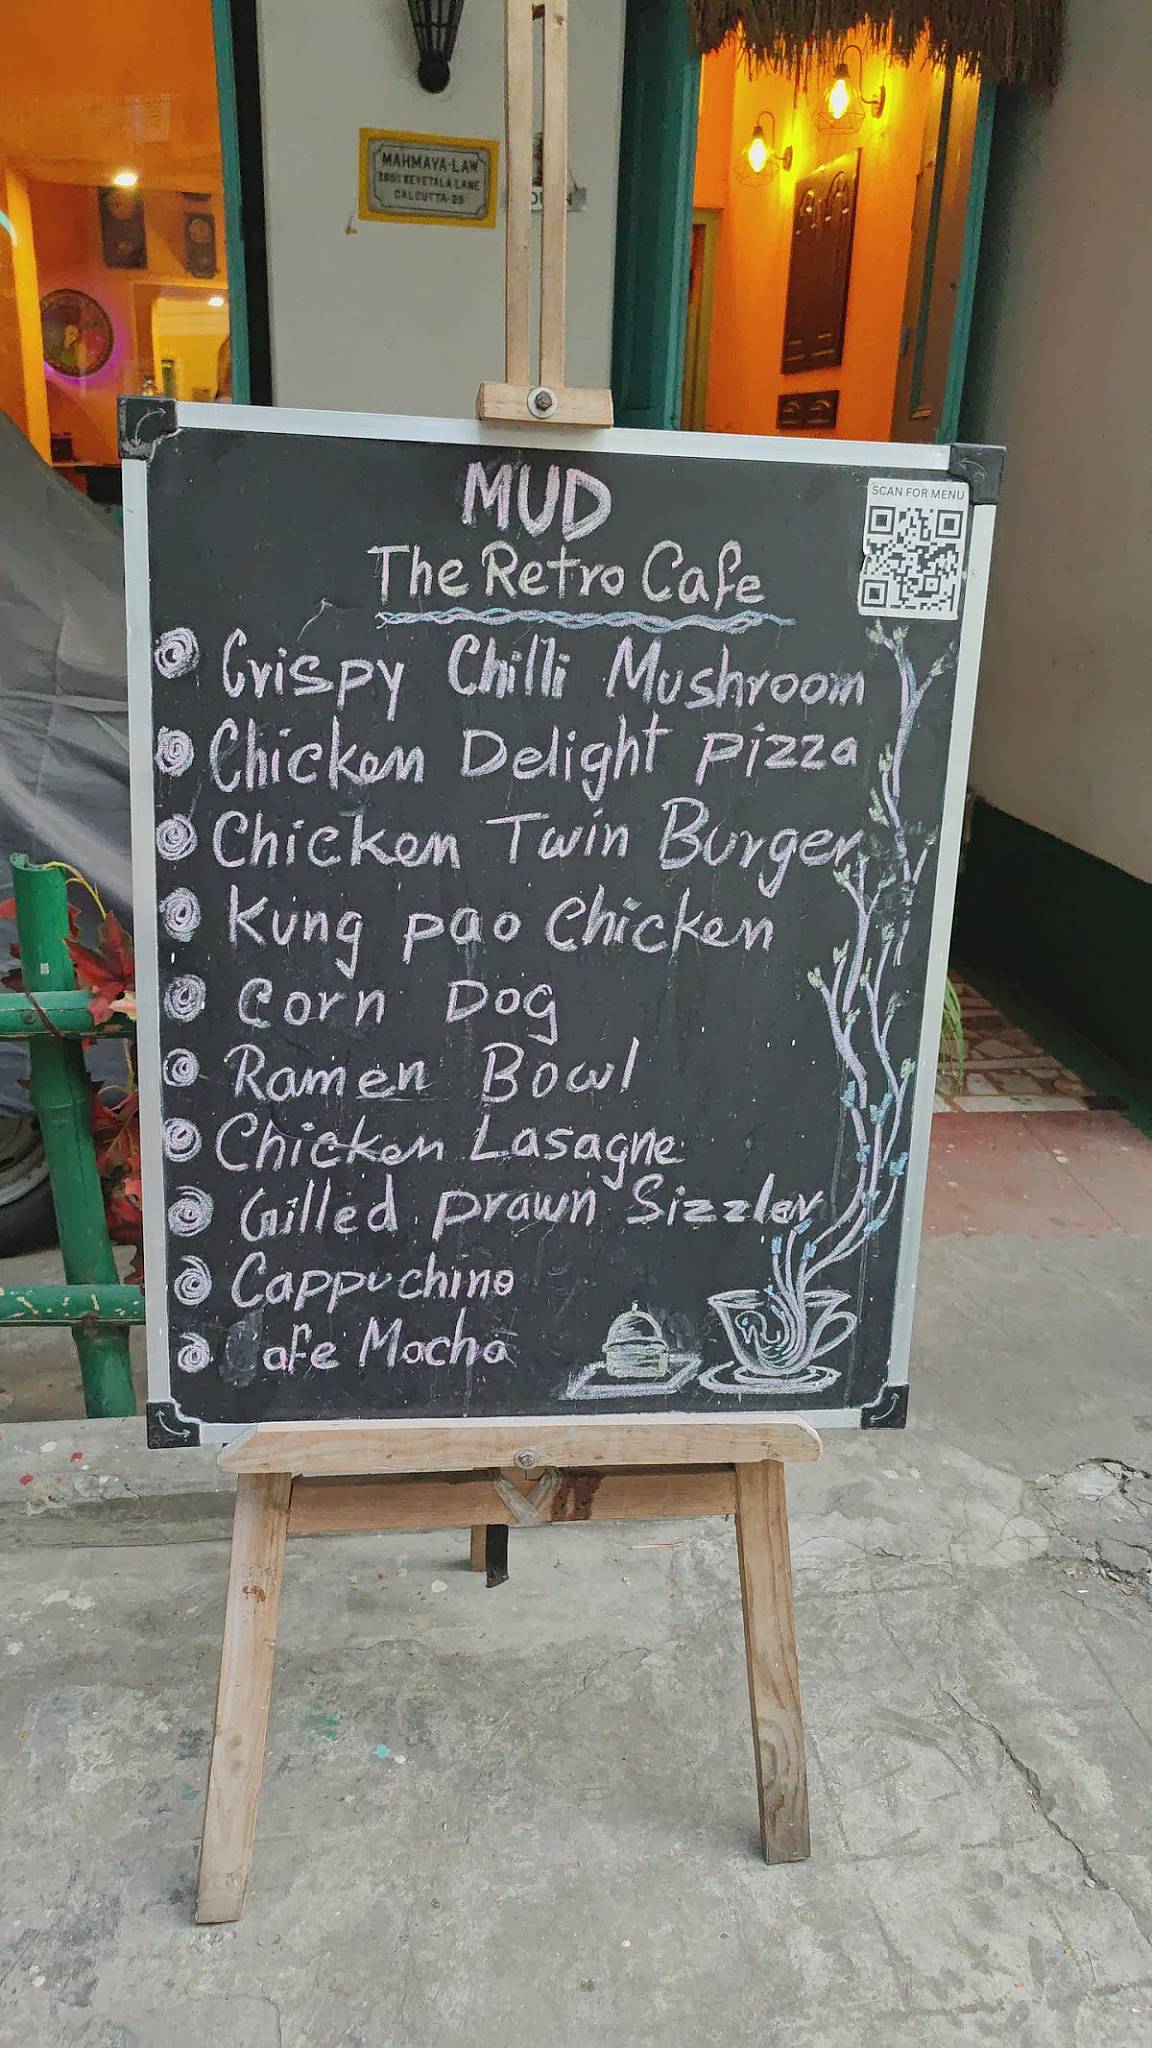 MAHMAYA-LAW
KEYETALA LANE
CALCUTTA-29
MUD
The Retro Cafe
SCAN FOR MENU
Crispy Chilli Mushroom
Chicken Delight pizza
Chicken Twin Burger
Kung pao Chicken
Corn Dog
Ramen Bowl
Chicken Lasagne
Grilled prawn Sizzler
Cappuchino
Cafe Mocha